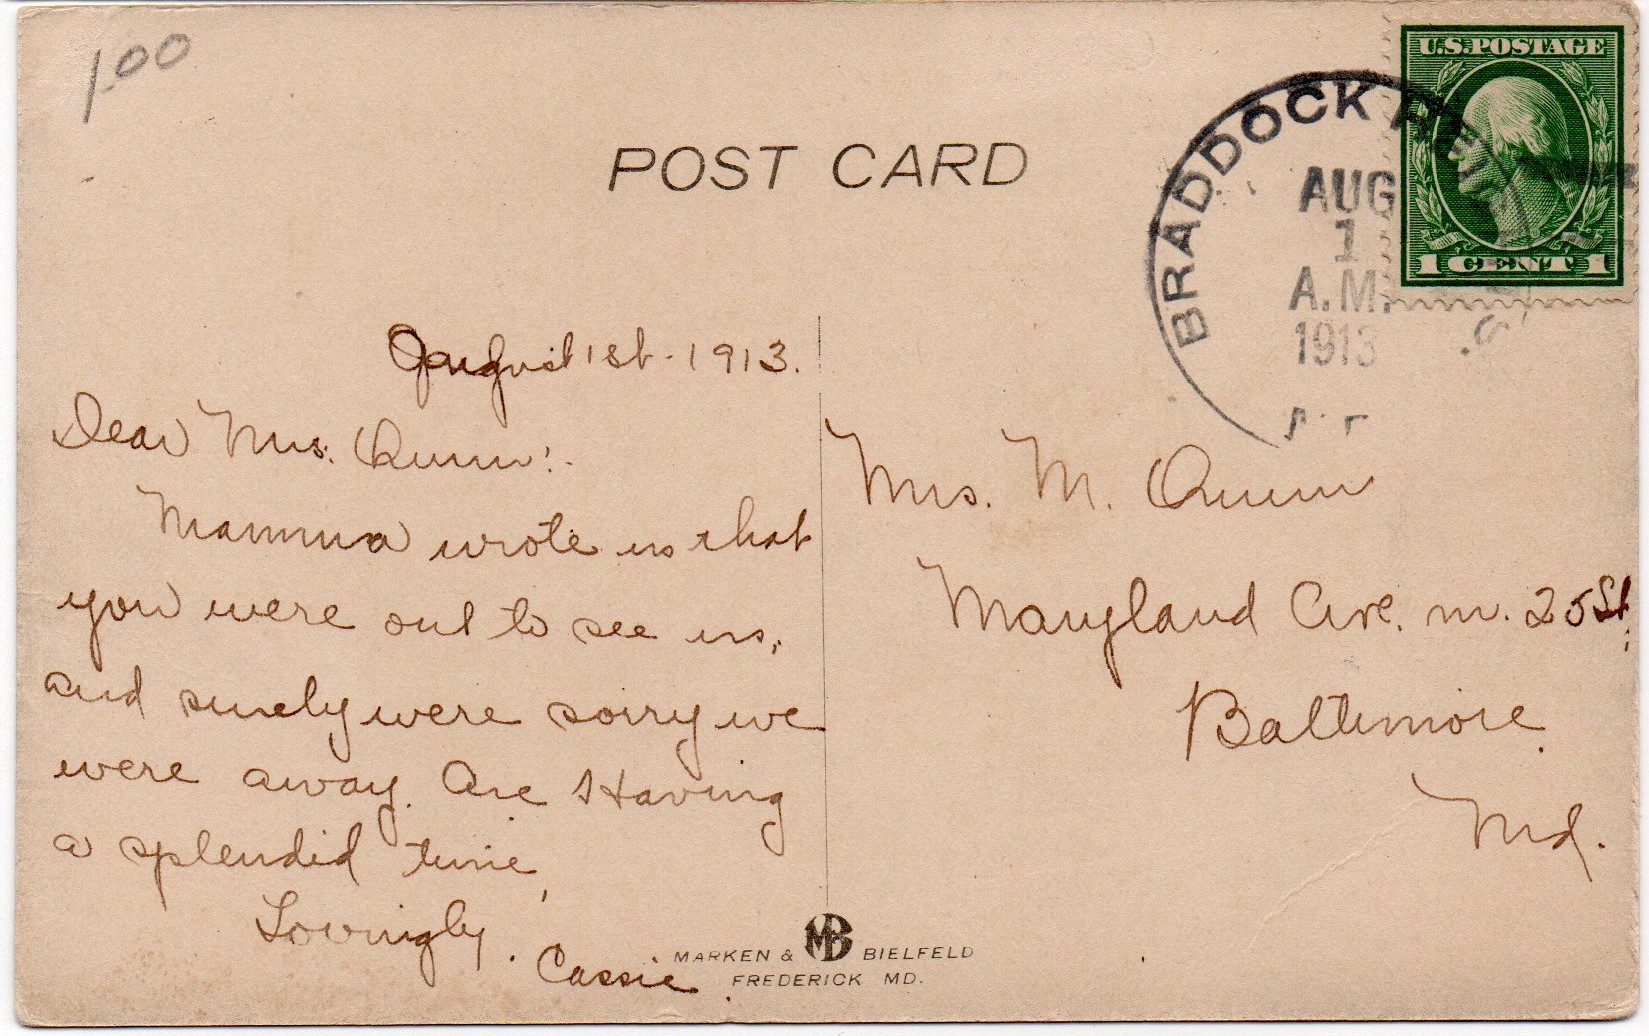 1.00
POST CARD
U.S. POSTAGE
1 CENT 1
BRADDOCK
AUG
1
A.M.
1913
August 1st - 1913.
Dear Mrs. Quinn:-
Mamma wrote us that
you were out to see us,
and surely were sorry we
were away. Are Having
a splendid time,
Lovingly.
Cassie.
Mrs. M. Quinn
Maryland Ave. n. 25 St.
Baltimore.
Md.
MB
MARKEN & BIELFELD
FREDERICK MD.